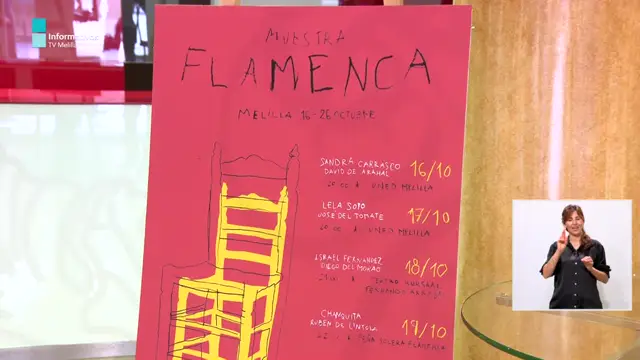 Informativos
TV Melilla
MUESTRA
FLAMENCA
MELILLA 16-26 OCTUBRE
SANDRA CARRASCO
DAVID DE ARAHAL
16/10
UNED MELILLA
LELA SOTO
JOSÉ DEL TOMATE
17/10
UNED MELILLA
ISRAEL FERNÁNDEZ
DIEGO DEL MORAO
18/10
TEATRO KURSAAL
FERNANDO ARRABAL
CHANQUITA
RUBÉN DE LINTOLA
19/10
PEÑA
FLAMENCA